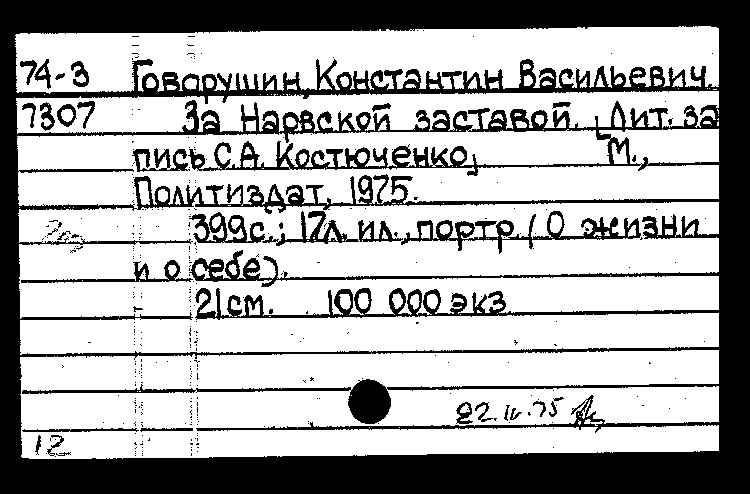 74-3 Говорушин, Константин Васильевич.
7307 За Нарвской заставой. [Лит. за
пись С.А. Костюченко] М.,
Политиздат, 1975.
399с.; 17л. ил., портр. (О жизни
и о себе).
21см. 100 000 экз
22.IV.75
12